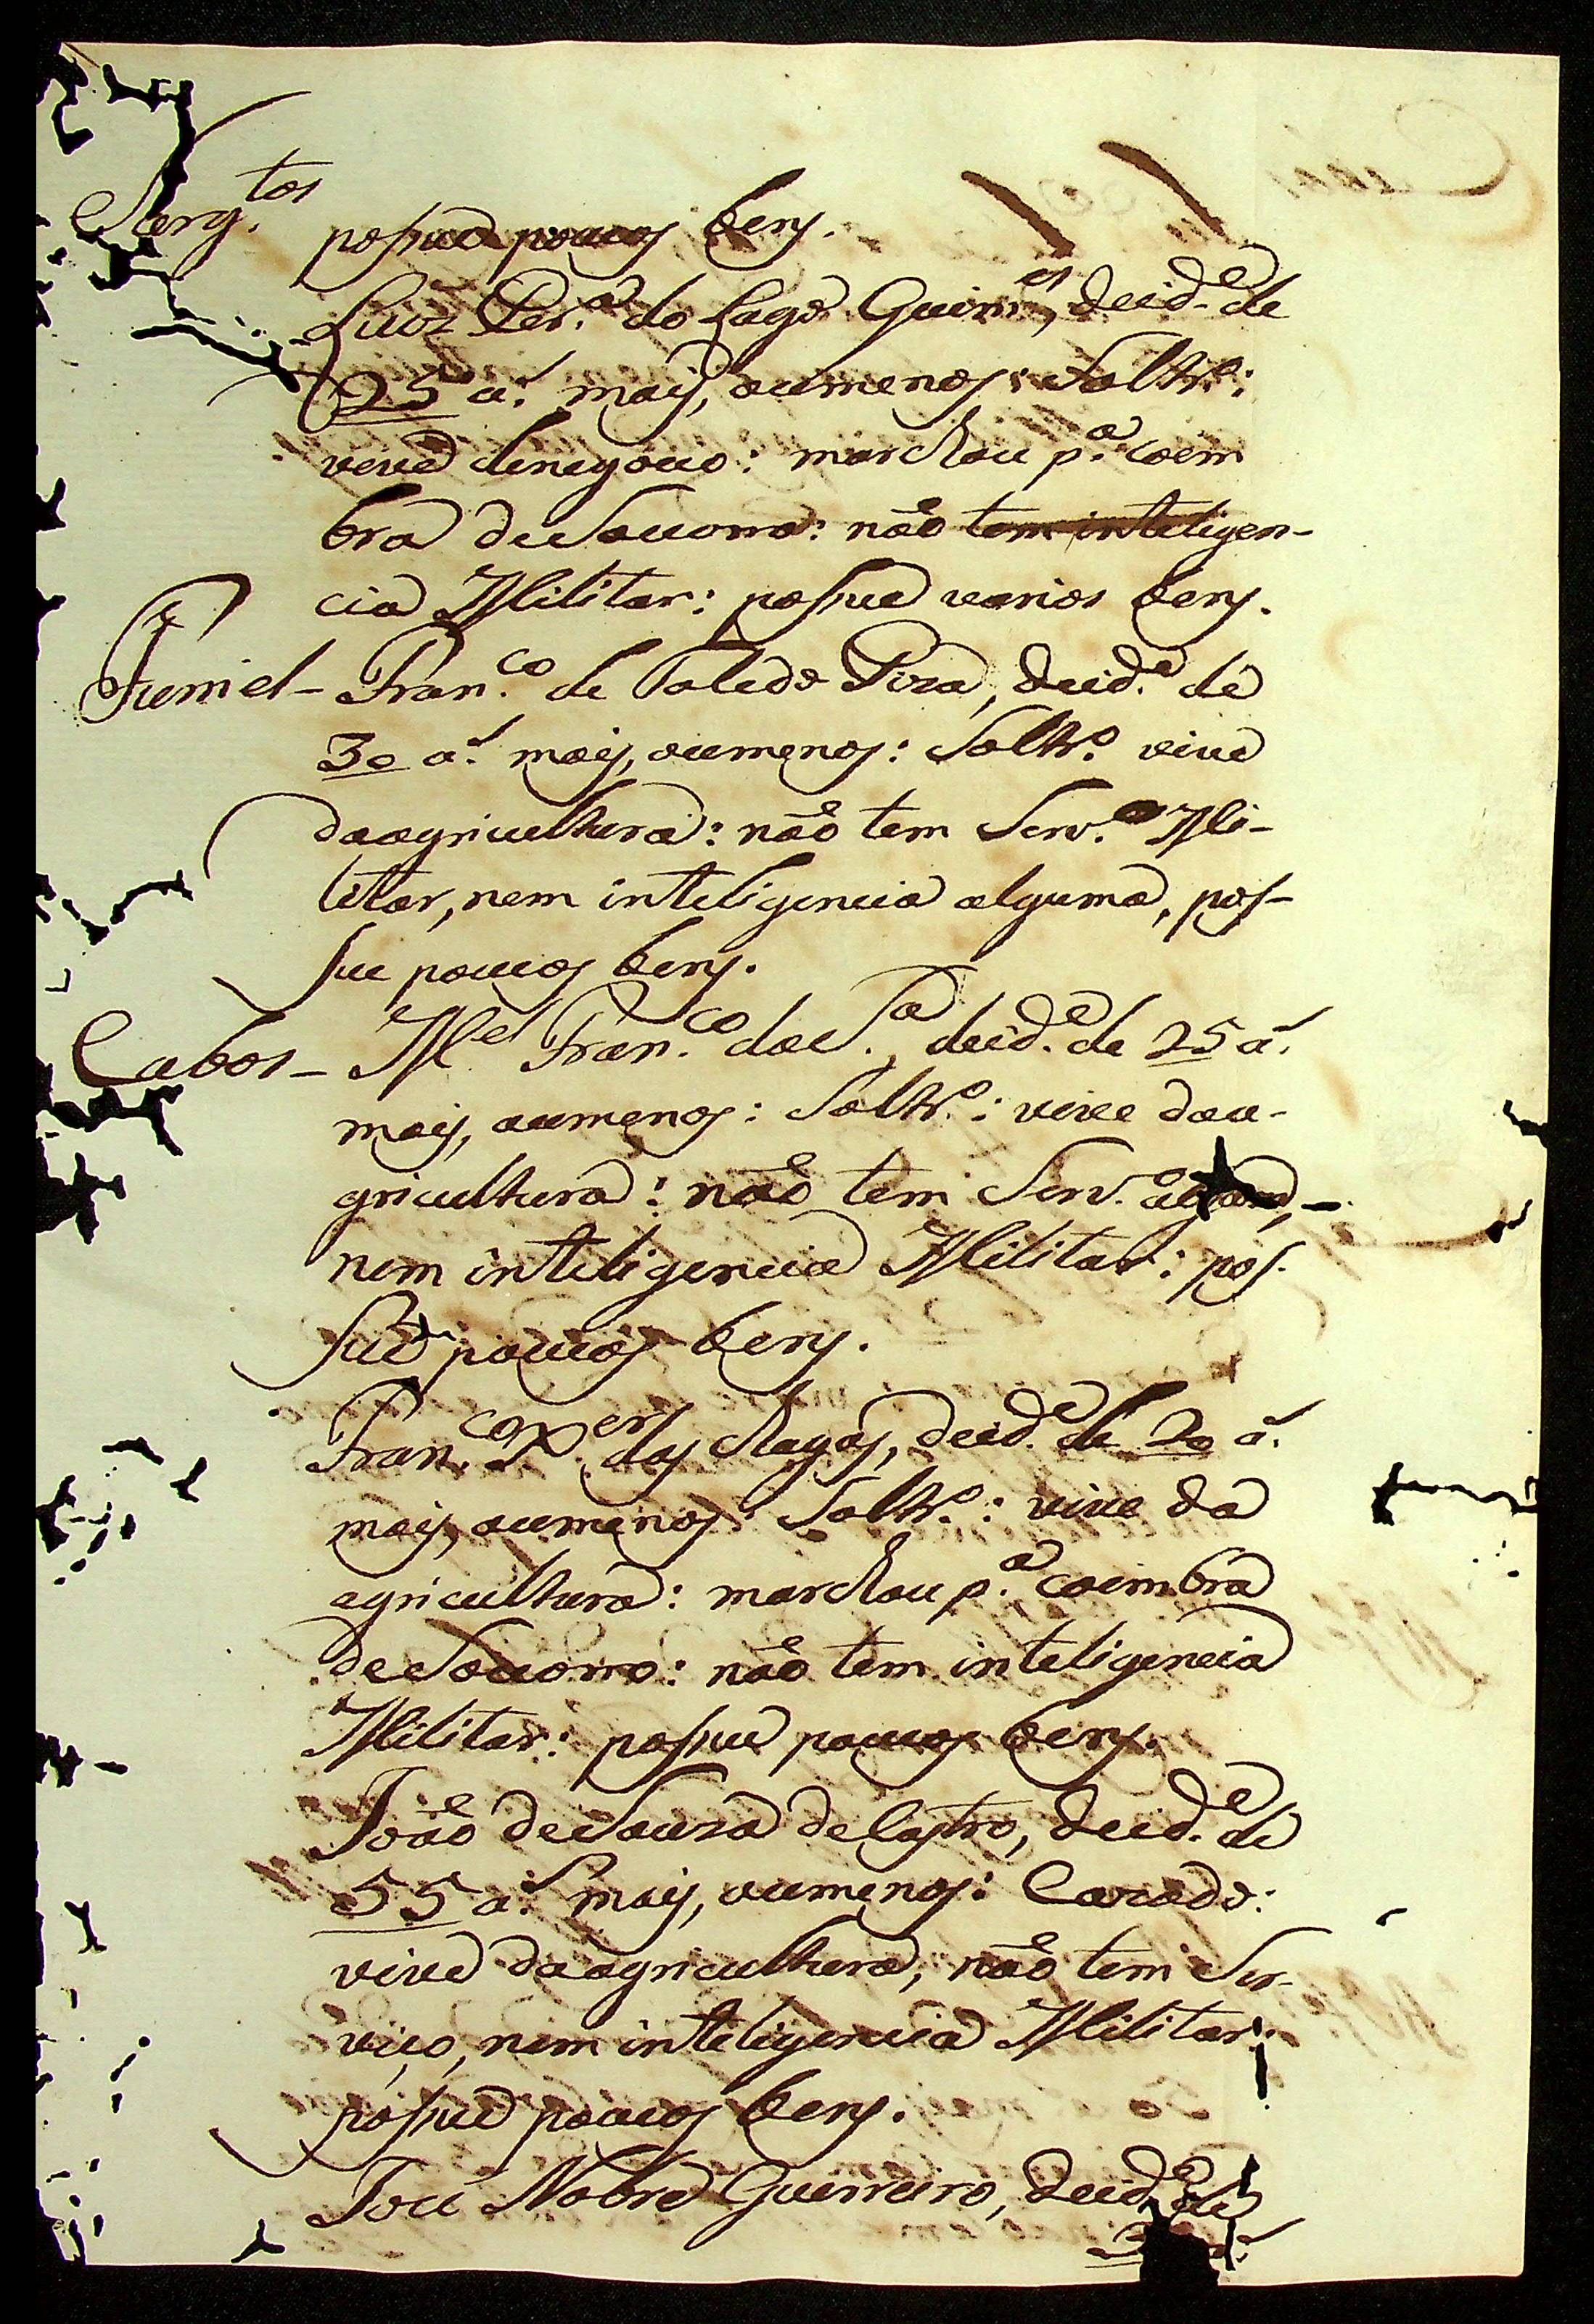 Serg.tos possue poucos bens.
Luiz Per.a do Lago Guim.es, deid.e de
25 a.s mais, oumenos: Soltr.o:
vive denegocio: marchou p.a coim
bra deSocorro: não tem inteligen-
cia Militar: possue varios bens.
Furriel - Fran.co de Toledo Piza, deid.e de
30 a.s mais, oumenos: Soltr.o vive
daagricultura: não tem Serv.o Mi-
litar, nem inteligencia alguma, pos-
sue poucos bens.
Cabos - M.el Fran.co daS.a, deid.e de 25 a.s
mais, oumenos: Soltr.o: vive daa-
gricultura: não tem Serv.o
nem inteligencia Militar: pos-
sue poucos bens.
Fran.co X.er das Chagas, deid.e de 20 a.s
mais, oumenos: Soltr.o: vive da
agricultura: marchou p.a coimbra
deSocorro: não tem inteligencia
Militar: possue poucos bens.
João deSouza deCastro, deid.e de
55 a.s mais, oumenos: Cazado:
vive daagricultura, não tem Ser-
viço, nem inteligencia Militar:
possue poucos bens.
José Nobre Guerreiro, deid.e de